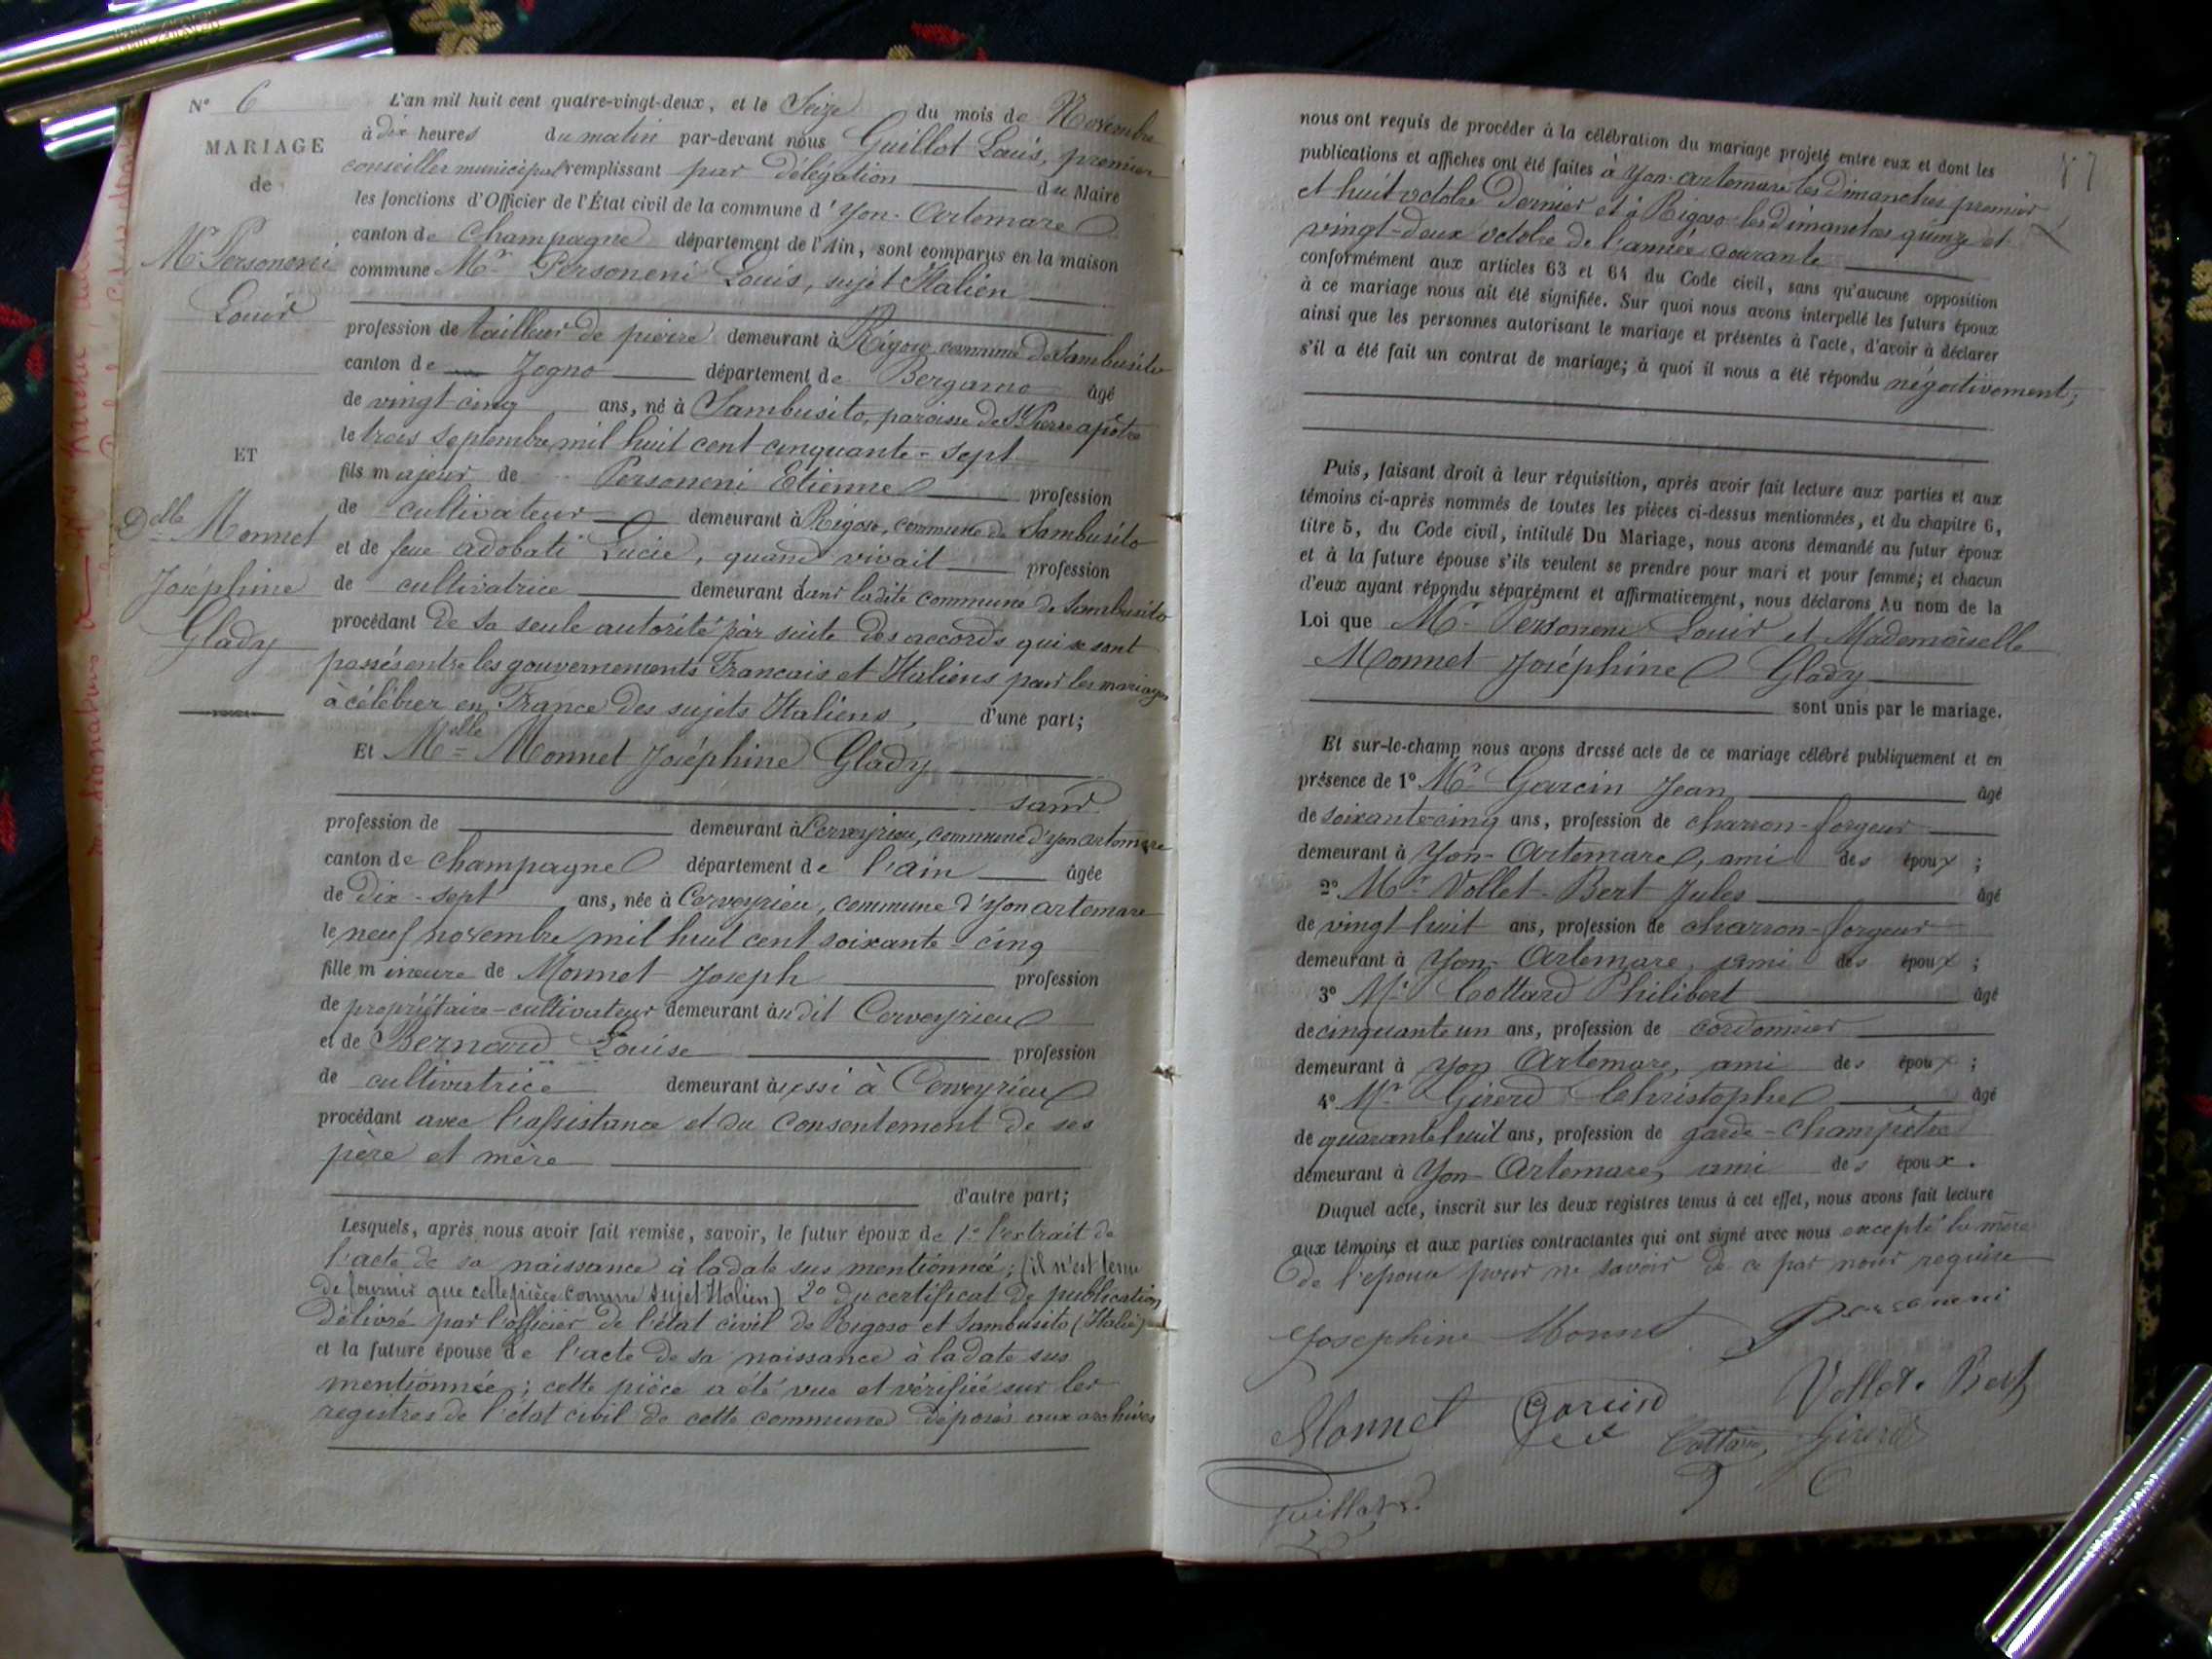 N° 6
MARIAGE
de
Mr Personeni
Louis
ET
Delle Monnet
Joséphine
Glady
L'an mil huit cent quatre-vingt-deux, et le Seize du mois de Novembre
à dix heures du matin par-devant nous Guillot Louis, premier
conseiller municipal remplissant par délégation du Maire
les fonctions d'Officier de l'État civil de la commune d'Yon-Artemare
canton de Champagne département de l'Ain, sont comparus en la maison
commune Mr Personeni Louis, sujet Italien
profession de tailleur de pierre demeurant à Rigoso commune de Sambusito
canton de Zogno département de Bergamo âgé
de vingt cinq ans, né à Sambusito, paroisse de St Pierre apôtre
le trois septembre mil huit cent cinquante-sept
fils majeur de Personeni Etienne profession
de cultivateur demeurant à Rigoso, commune de Sambusito
et de feue Adobati Lucie, quand vivait profession
de cultivatrice demeurant dans ladite commune de Sambusito
procédant de sa seule autorité par suite des accords qui se sont
passés entre les gouvernements Francais et Italiens pour les mariages
à célébrer en France des sujets Italiens, d'une part;
Et Melle Monnet Joséphine Glady
sans
profession de demeurant à Cerveyrieu, commune d'yon artemare
canton de Champagne département de l'ain âgée
de dix-sept ans, née à Cerveyrieu, commune d'yon artemare
le neuf novembre mil huit cent soixante-cinq
fille mineure de Monnet Joseph profession
de propriétaire-cultivateur demeurant audit Cerveyrieu
et de Bernard Louise profession
de cultivatrice demeurant aussi à Cerveyrieu
procédant avec l'assistance et du consentement de ses
père et mère
d'autre part;
Lesquels, après nous avoir fait remise, savoir, le futur époux de 1° l'extrait de
l'acte de sa naissance à la date sus mentionnée; (il n'est tenu
de fournir que cette pièce comme sujet Italien) 2° du certificat de publication
délivré par l'officier de l'état civil de Rigoso et Sambusito (Italie)
et la future épouse de l'acte de sa naissance à la date sus
mentionnée; cette pièce a été vue et vérifiée sur les
registres de l'état civil de cette commune déposés aux archives
nous ont requis de procéder à la célébration du mariage projeté entre eux et dont les
publications et affiches ont été faites à Yon-artemare les dimanches premier
et huit octobre dernier et à Rigoso les dimanches quinze et
vingt-deux octobre de l'année courante
conformément aux articles 63 et 64 du Code civil, sans qu'aucune opposition
à ce mariage nous ait été signifiée. Sur quoi nous avons interpellé les futurs époux
ainsi que les personnes autorisant le mariage et présentes à l'acte, d'avoir à déclarer
s'il a été fait un contrat de mariage; à quoi il nous a été répondu négativement;
Puis, faisant droit à leur réquisition, après avoir fait lecture aux parties et aux
témoins ci-après nommés de toutes les pièces ci-dessus mentionnées, et du chapitre 6,
titre 5, du Code civil, intitulé Du Mariage, nous avons demandé au futur époux
et à la future épouse s'ils veulent se prendre pour mari et pour femme; et chacun
d'eux ayant répondu séparément et affirmativement, nous déclarons Au nom de la
Loi que Mr Personeni Louis et Mademoiselle
Monnet Joséphine Glady
sont unis par le mariage.
Et sur-le-champ nous avons dressé acte de ce mariage célébré publiquement et en
présence de 1° Mr Garcin Jean âgé
de soixante-cinq ans, profession de charron-forgeur
demeurant à Yon-Artemare, ami des époux;
2° Mr Vollet-Bert Jules âgé
de vingt-huit ans, profession de charron-forgeur
demeurant à Yon-Artemare, ami des époux;
3° Mr Cottard Philibert âgé
de cinquante un ans, profession de cordonnier
demeurant à Yon Artemare, ami des époux;
4° Mr Girerd Christophe âgé
de quarante huit ans, profession de garde-champêtre
demeurant à Yon-Artemare, ami des époux.
Duquel acte, inscrit sur les deux registres tenus à cet effet, nous avons fait lecture
aux témoins et aux parties contractantes qui ont signé avec nous excepté la mère
de l'épouse pour ne savoir de ce par nous requise
Josephine Monnet Personeni
Vollet-Bert
Monnet Garcin
Cottard Girerd
Guillot